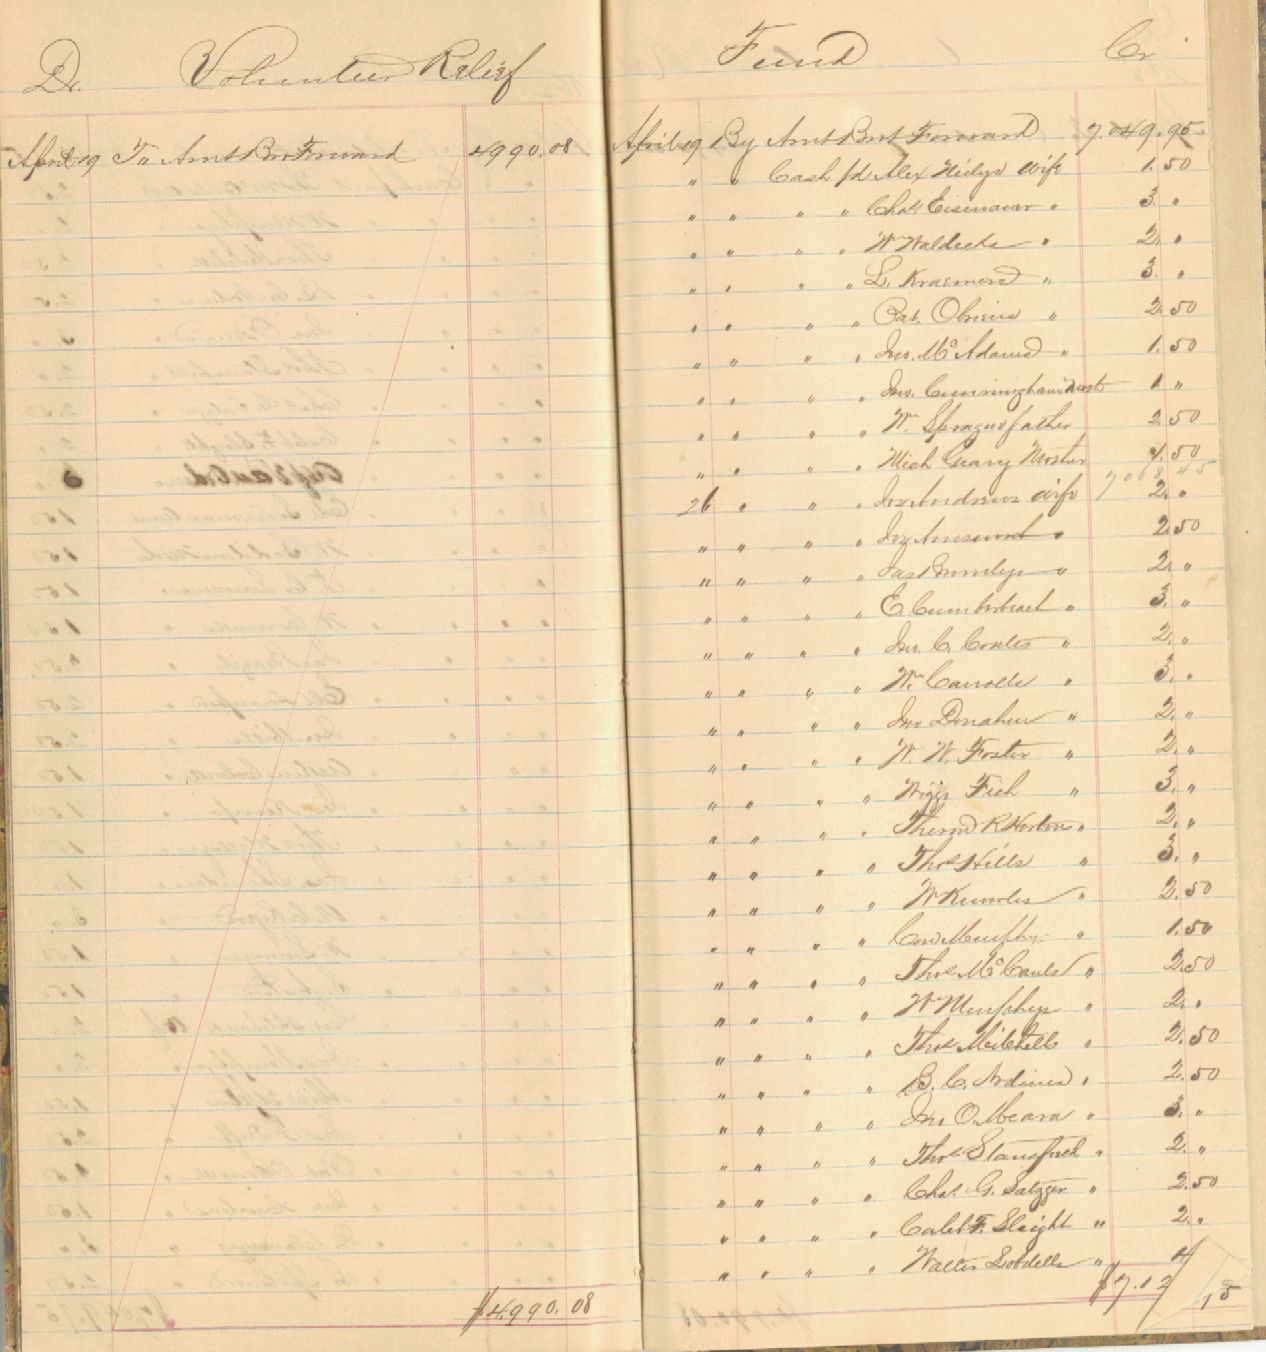 Dr. Volunteer Relief Fund Cr
April 19 To Amt Bro Forward 4990.08
$4990.08
April 19 By Amt Brot Forward 7.049.95
" " Cash pd Alex wife 1.50
" " " " Chas. Eisenauer " 3. "
" " " " Wm Waldecks " 2. "
" " " " L. Kraemers " 3. "
" " " " Pat. Obriens " 2.50
" " " " Jno. Mc Adams " 1.50
" " " " Jno. Cunninghams 1 "
" " " " Wm. Sprague father 2.50
" " " " Mich Geary Mother 1.50
7068 45
26 " " " Andrews wife 2. "
" " " " 2.50
" " " " Jas " 2. "
" " " " E. " 3. "
" " " " Jno. C. Coates " 2. "
" " " " Wm Carrolls " 3. "
" " " " Jno Donahue " 2. "
" " " " W. W. Foster " 2. "
" " " " " 3. "
" " " " R Horton " 2. "
" " " " Thos Hills " 3. "
" " " " W " 2.50
" " " " Murphy " 1.50
" " " " Thos Mc Cauls " 2.50
" " " " Wm Murphys " 2. "
" " " " Thos Mitchells " 2.50
" " " " B. C. " 2.50
" " " " Jno O.Meara " 3. "
" " " " Thos " 2. "
" " " " Chas. G. Satzger " 2.50
" " " " Caleb F. Sleight " 2. "
" " " " Walter " 4
$7.12 15